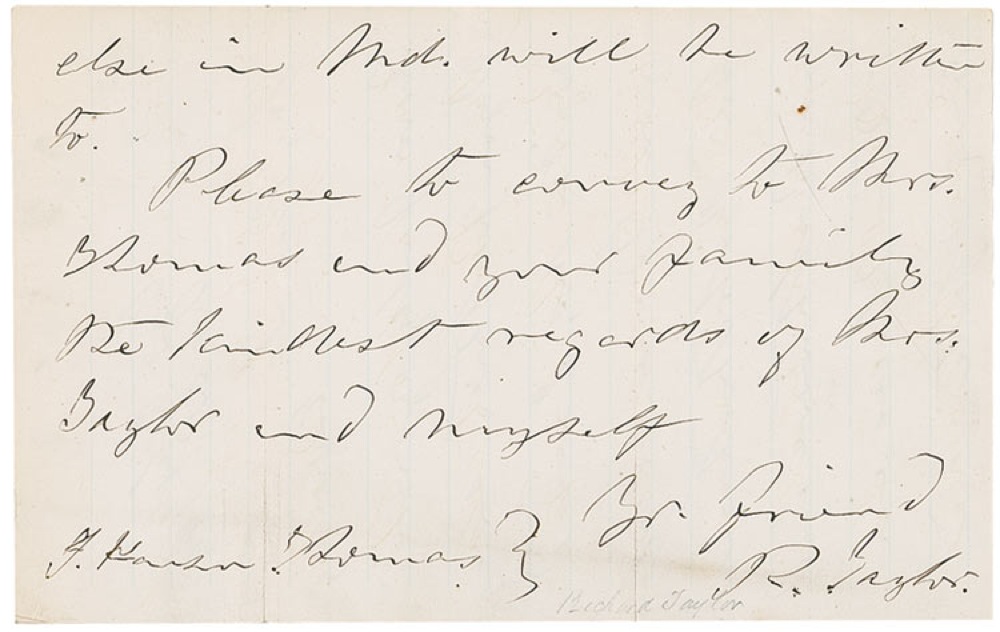 else in Md. will be written
to.
Please to convey to Mrs.
Thomas and your family
the kindest regards of Mrs.
Taylor and myself
Yr. friend
J. Hanson Thomas } R. Taylor.
Richard Taylor